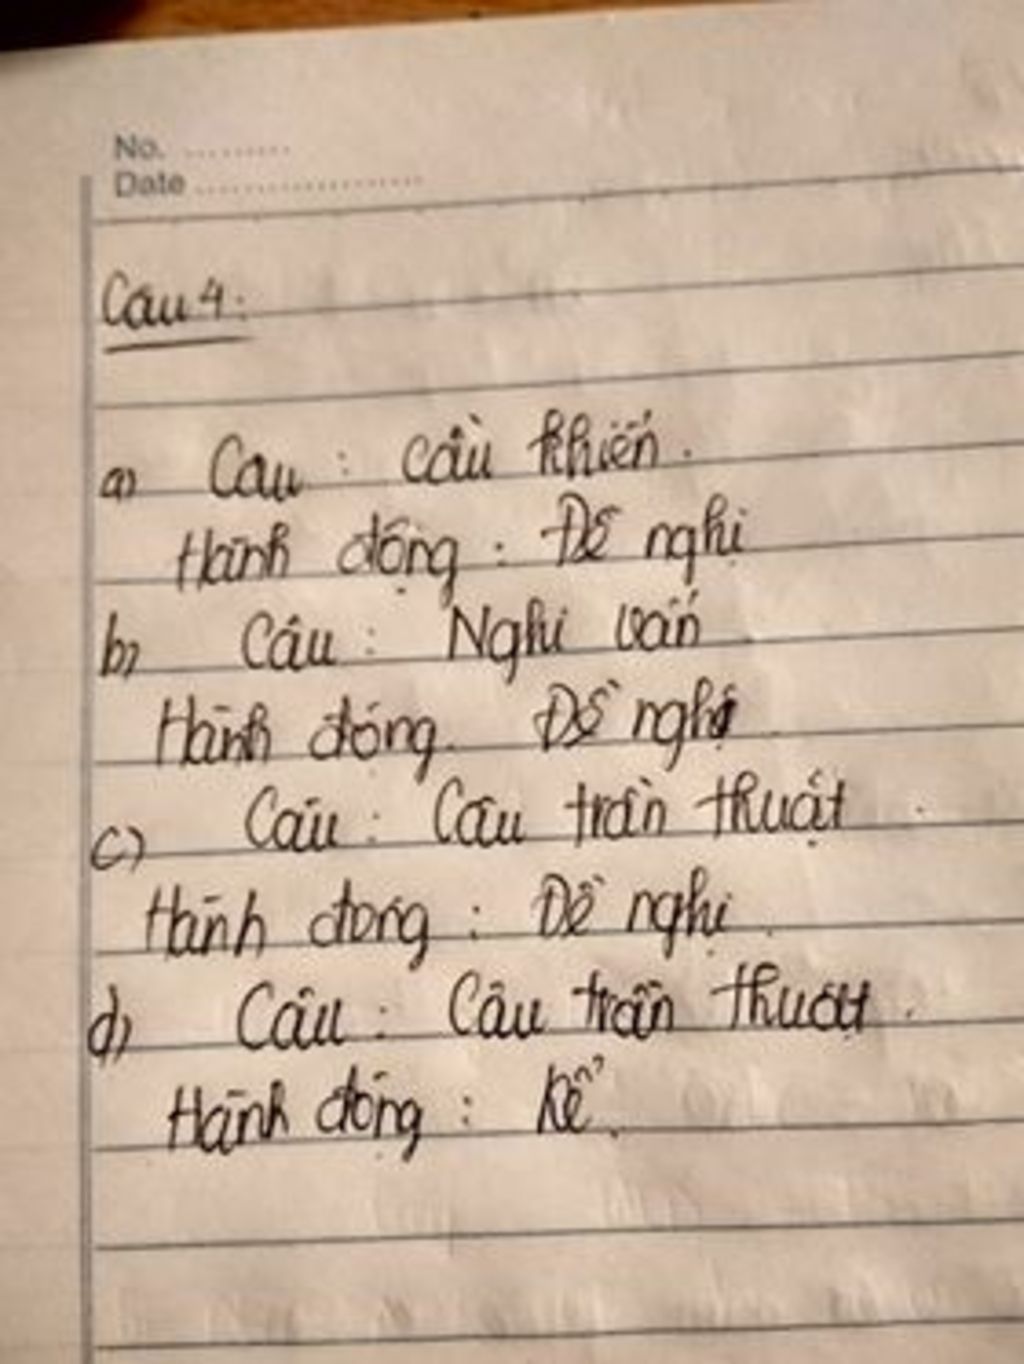 No. .........
Date ....................
Câu 4:
a) Câu : cầu khiến.
Hành động : Đề nghị
b) Câu : Nghi vấn
Hành động. Đề nghị
c) Câu : Câu trần thuật.
Hành động : Đề nghị.
d) Câu : Câu trần thuật.
Hành động : Kể.